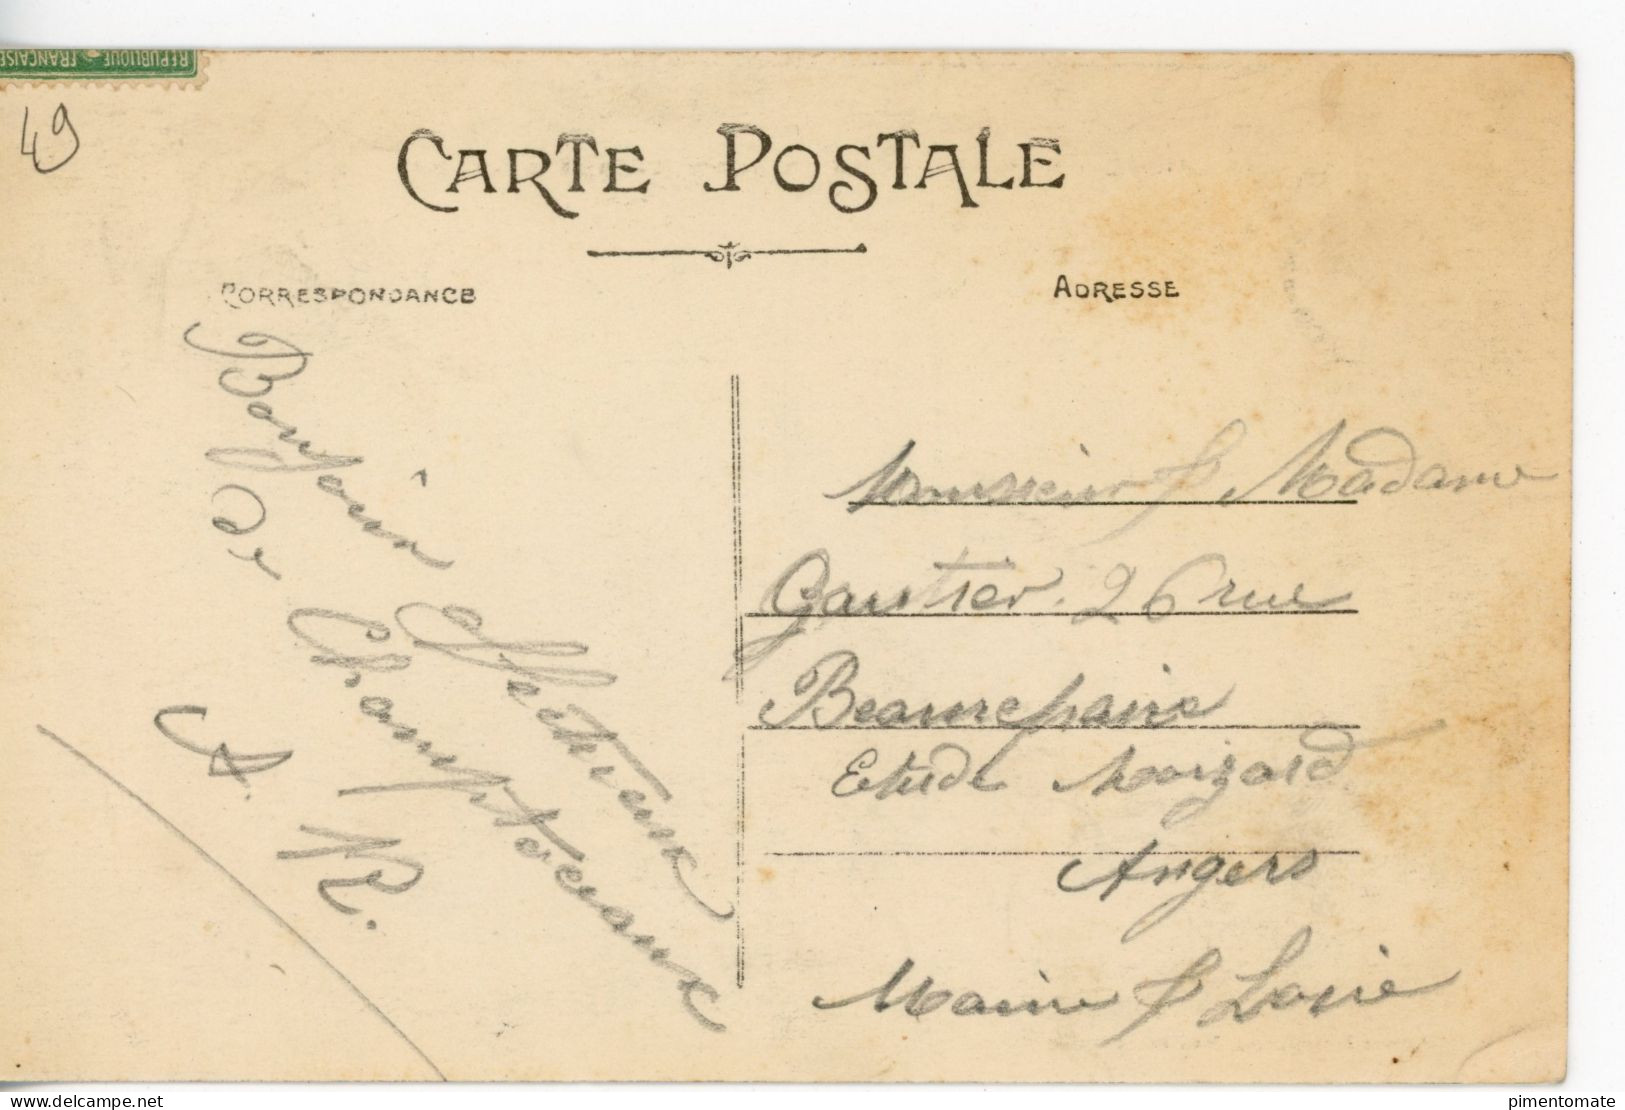 REPUBLIQUE FRANÇAISE
49
CARTE POSTALE
CORRESPONDANCE
ADRESSE
Bonjour
affectueux
de Champtoceaux
A. R.
Monsieur & Madame
Gautier. 26 rue
Beaurepaire
Etude
Angers
Maine & Loire
delcampe.net
pimentomate